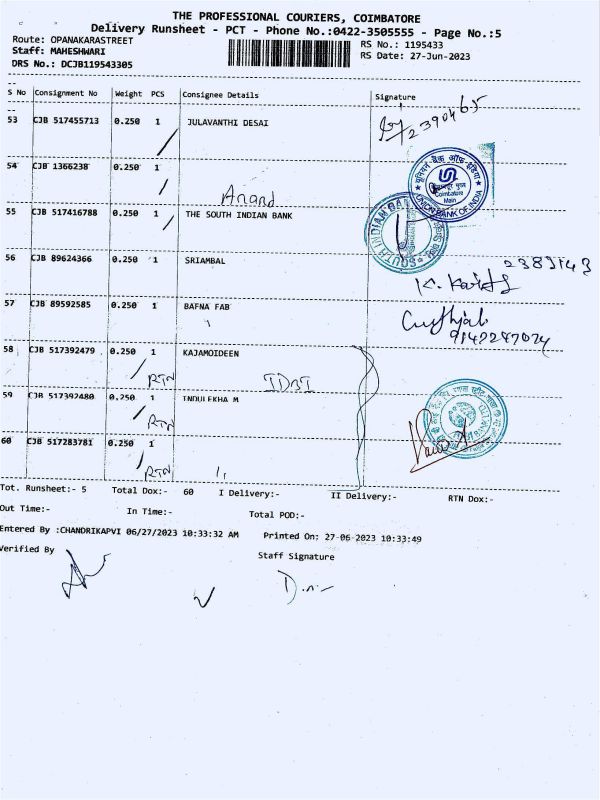 THE PROFESSIONAL COURIERS, COIMBATORE
Delivery Runsheet - PCT - Phone No.:0422-3505555 - Page No.:5
Route: OPANAKARASTREET
RS No.: 1195433
Staff: MAHESHWARI
RS Date: 27-Jun-2023
DRS No.: DCJB119543305
S No Consignment No Weight PCS Consignee Details Signature
53 CJB 517455713 0.250 1 JULAVANTHI DESAI
2390465
54 CJB 1366238 0.250 1
यूनियन बैंक ऑफ इंडिया
Coimbatore
Main
UNION BANK OF INDIA
Anand
55 CJB 517416788 0.250 1 THE SOUTH INDIAN BANK
SOUTH INDIAN BA
56 CJB 89624366 0.250 1 SRIAMBAL
2383143
57 CJB 89592585 0.250 1 BAFNA FAB
9142247074
58 CJB 517392479 0.250 1 KAJAMOIDEEN
RTN IDBI
59 CJB 517392480 0.250 1 INDULEKHA M
RTN
60 CJB 517283781 0.250 1
RTN ,,
Tot. Runsheet:- 5 Total Dox:- 60 I Delivery:- II Delivery:- RTN Dox:-
Out Time:- In Time:- Total POD:-
Entered By :CHANDRIKAPVI 06/27/2023 10:33:32 AM Printed On: 27-06-2023 10:33:49
Verified By Staff Signature